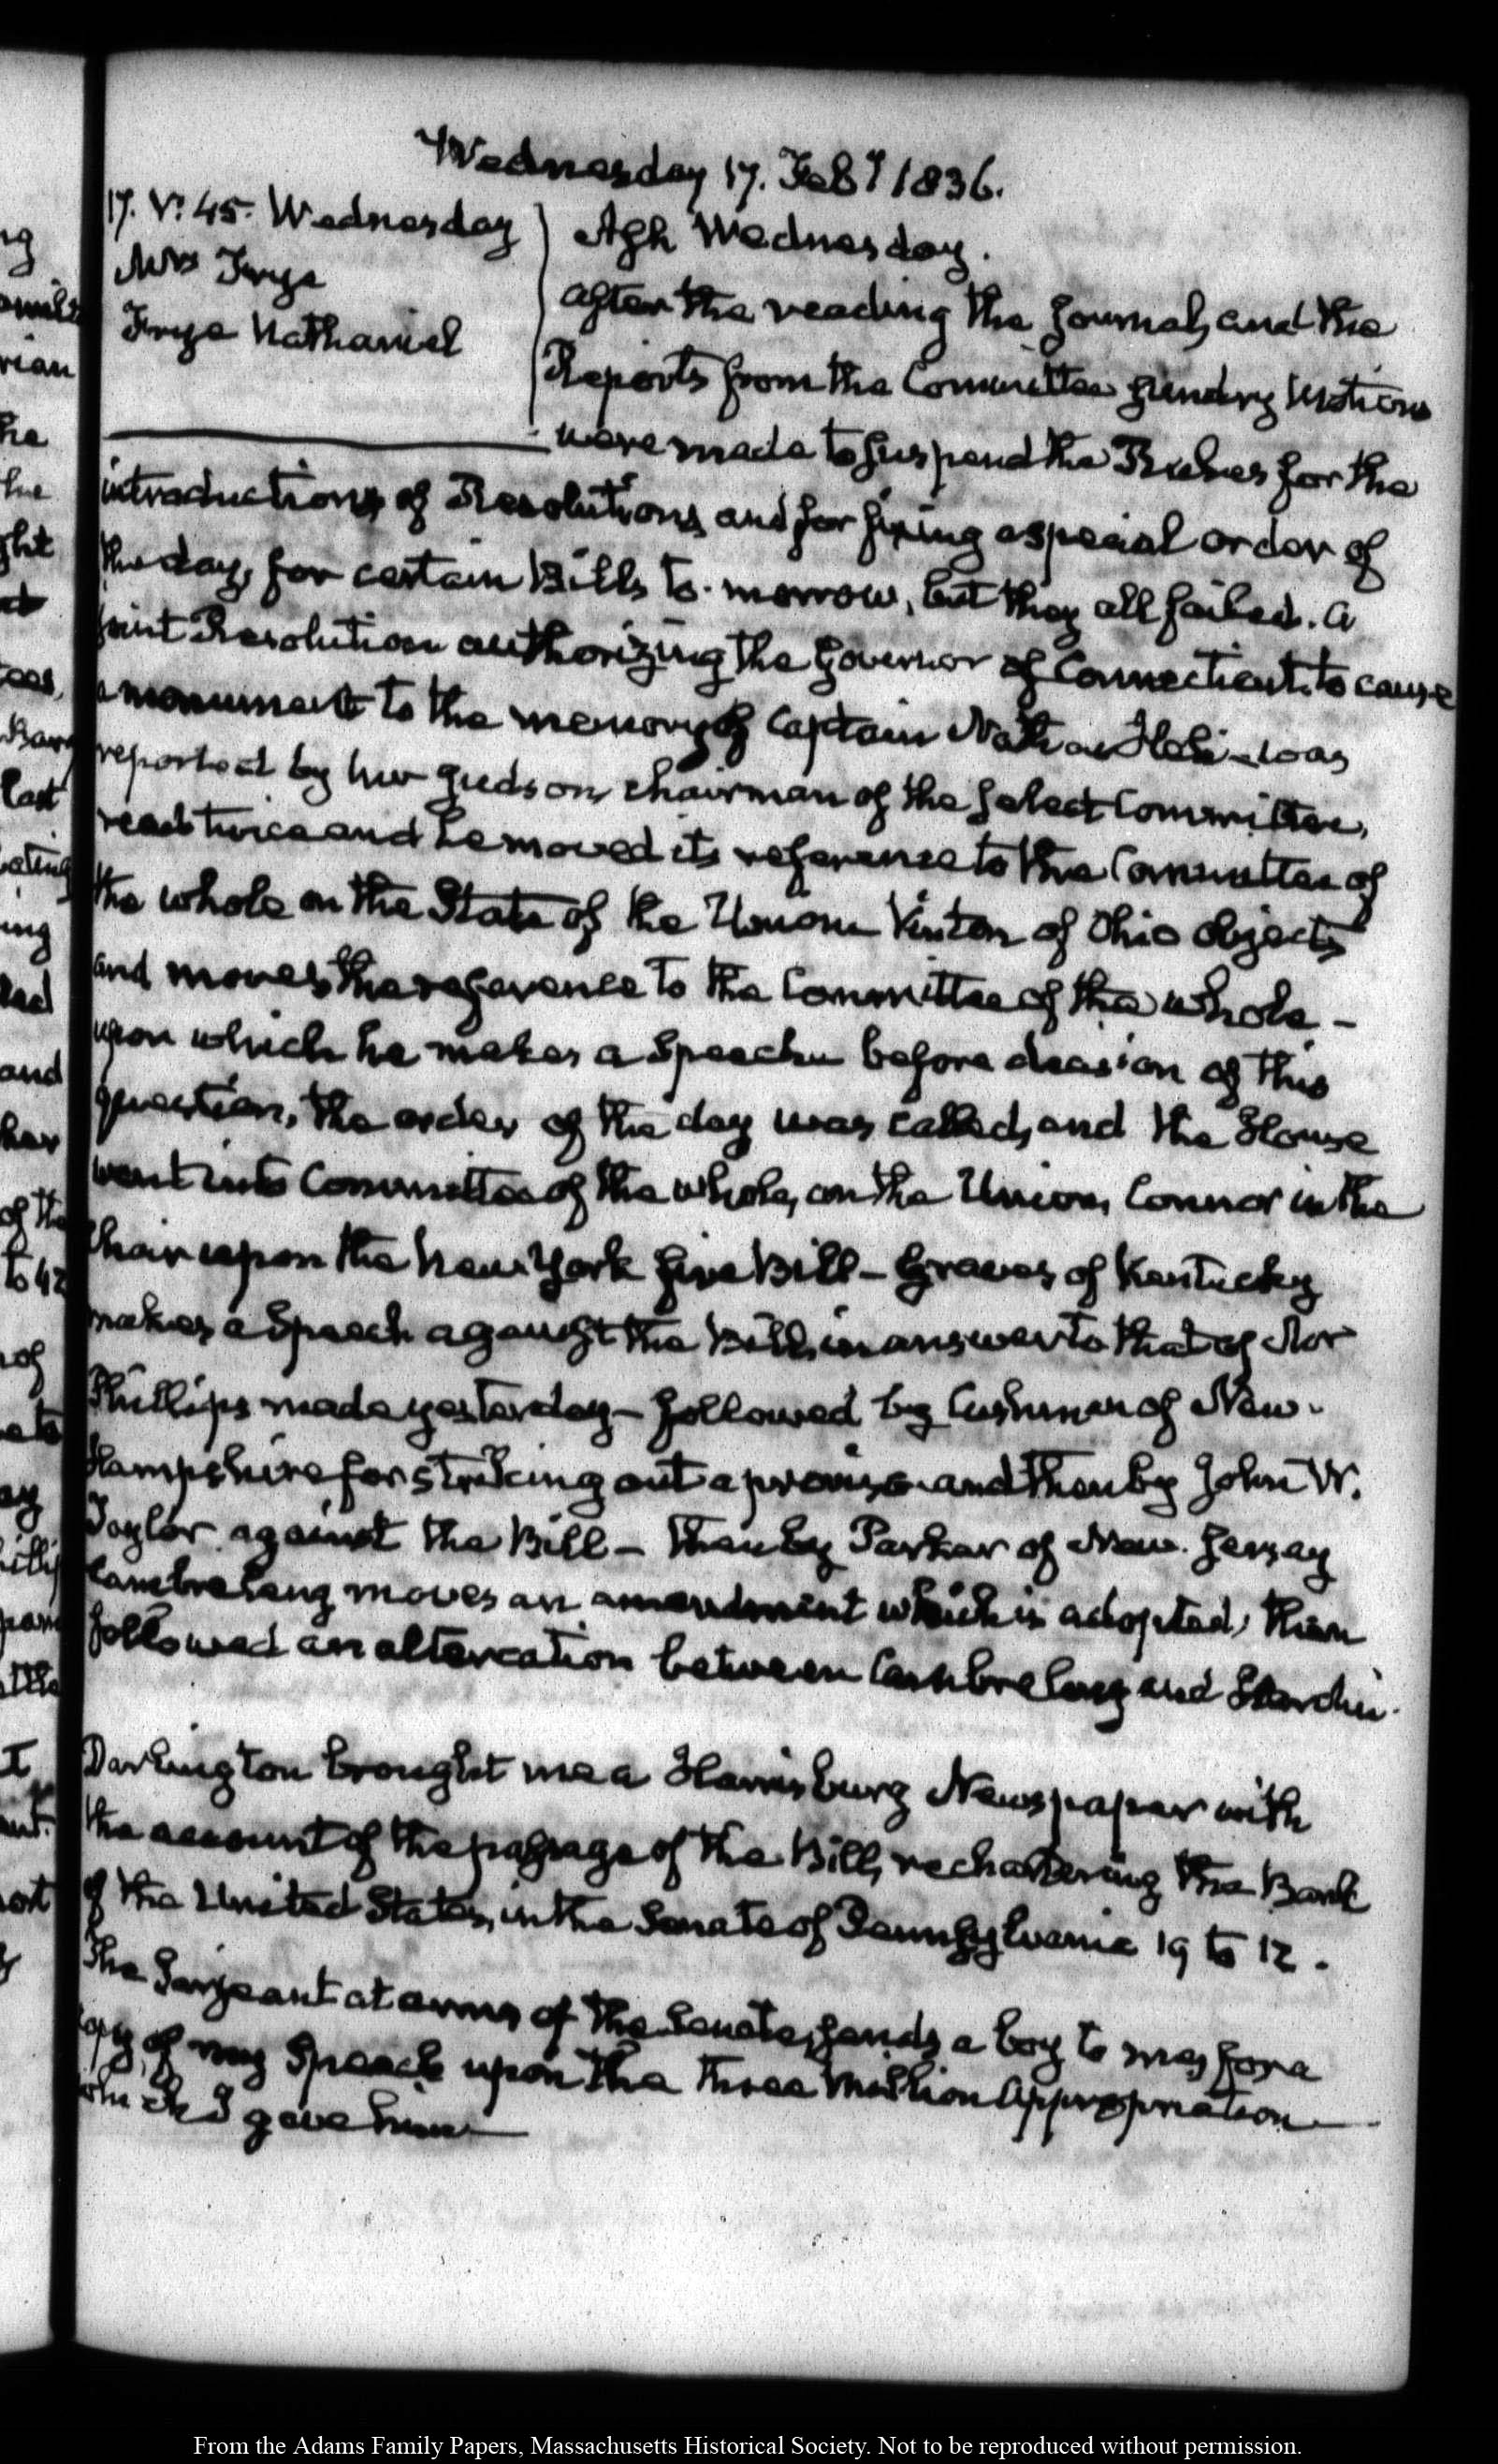 Wednesday 17. Feby 1836.
17. V: 45. Wednesday
Mrs Frye
Frye Nathaniel
Ash Wednesday.
After the reading the Journal, and the
Reports from the Committees sundry Motions
were made to suspend the Rules for the
introduction of Resolutions and for fixing a special order of
the day, for certain Bills to-morrow, but they all failed. A
joint Resolution authorizing the Governor of Connecticut to cause
a monument to the memory of Captain Nathan Hale was
reported by Mr Judson, chairman of the select Committee,
read twice and he moved its reference to the Committee of
the whole on the State of the Union Vinton of Ohio objects
and moves the reference to the Committee of the whole —
upon which he makes a Speech before decision of this
question, the order of the day was called, and the House
went into Committee of the whole, on the Union, Connor in the
Chair upon the New York fire Bill — Graves of Kentucky
makes a Speech against the Bill, in answer to that of Mr
Phillips made yesterday — followed by Cushman of New-
Hampshire for striking out a proviso and then by John W.
Taylor against the Bill — then by Parker of New-Jersey
Cambreleng moves an amendment which is adopted, then
followed an altercation between Cambreleng and Hardin.
Darlington brought me a Harrisburg Newspaper with
the account of the passage of the Bill, rechartering the Bank
of the United States, in the Senate of Pennsylvania 19 to 12.
The Serjeant at arms of the Senate, sends a boy to me, for a
copy of my Speech upon the three Million Appropriation —
which I gave him —
ng
rian
he
the
ght
last
ating
ing
and
her
of the
to 42
of
ay
I
From the Adams Family Papers, Massachusetts Historical Society. Not to be reproduced without permission.